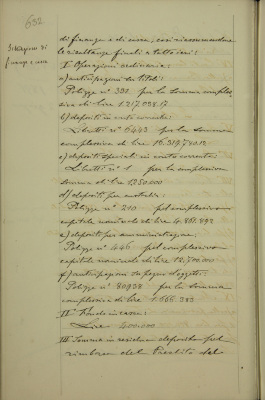 632
Situazione di
finanza e cassa
di finanza e di cassa, così riassumendone
le risultanze finali a tutto ieri:
I° Operazioni ordinarie:
a) anticipazioni su titoli:
Polizze n° 331 per la somma comples-
siva di lire 1.217.038.17
b) depositi in conto corrente:
Libretti n° 6443 per la somma
complessiva di lire
c) depositi speciali in conto corrente:
Libretti n° 1 per la complessiva
somma di lire 1.250.000
d) depositi per custodia:
Polizze n° 210 pel complessivo
capitale nominale di lire 4.861.892
e) depositi per amministrazione:
Polizze n° 446 pel complessivo
capitale nominale di lire 12,700.000
f) anticipazioni su pegno d'oggetti:
Polizze n° 80938 per la somma
complessiva di lire 1.666.383
II° Fondo in cassa:
Lire 400.000
III° Somma in residuo depositata pel
rimborso del Prestito del